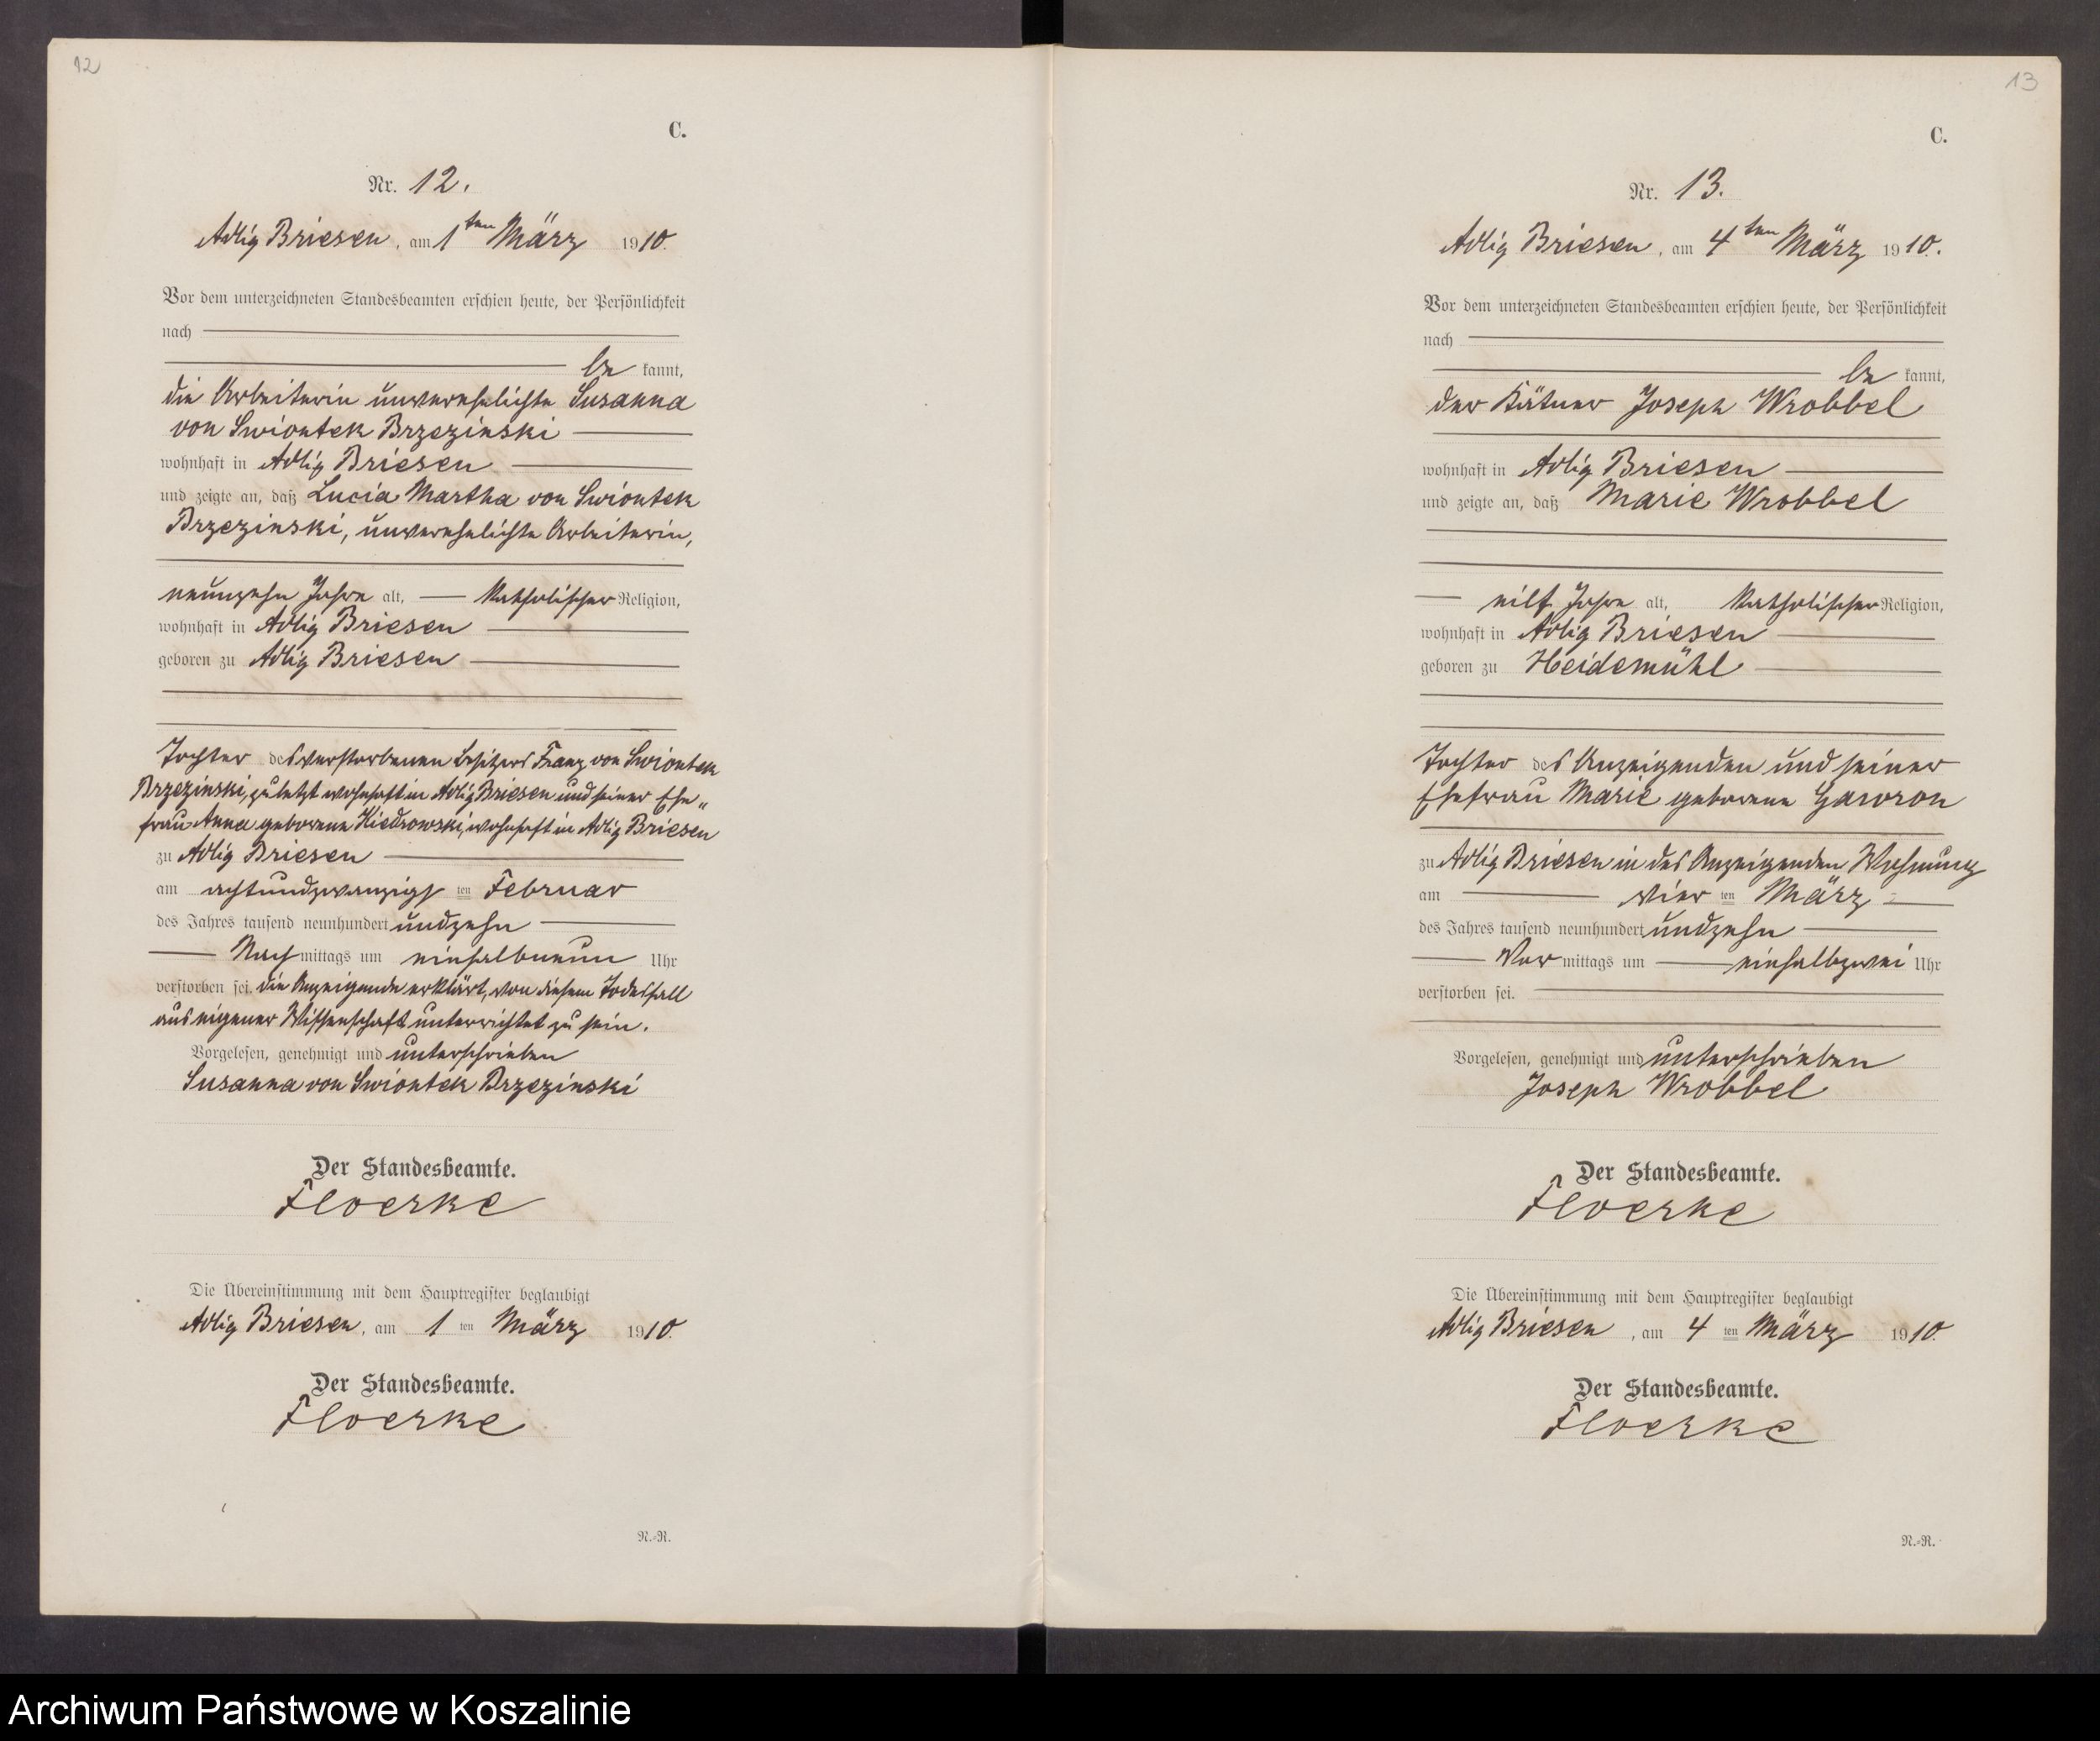 12
C.
Nr. 12.
Adlig Briesen, am 1ten März 1910.
Vor dem unterzeichneten Standesbeamten erschien heute, der Persönlichkeit
nach
be kannt,
die Arbeiterin unverehelichte Susanna
von Swiontek Brzezinski
wohnhaft in Adlig Briesen
und zeigte an, daß Lucia Martha von Swiontek
Brzezinski, unverehelichte Arbeiterin,
neunzehn Jahre alt, katholischer Religion,
wohnhaft in Adlig Briesen
geboren zu Adlig Briesen
Tochter des verstorbenen Besitzers Franz von Swiontek
Brzezinski, zuletzt wohnhaft in Adlig Briesen und seiner Ehe„
frau Anna geborene Kiedrowski, wohnhaft in Adlig Briesen
zu Adlig Briesen
am achtundzwanzigsten Februar
des Jahres tausend neunhundert undzehn
Nachmittags um einhalbneun Uhr
verstorben sei. die Anzeigende erklärt, von diesem Todesfall
aus eigener Wissenschaft unterrichtet zu sein.
Vorgelesen, genehmigt und unterschrieben
Susanna von Swiontek Brzezinski
Der Standesbeamte.
Floerke
Die Übereinstimmung mit dem Hauptregister beglaubigt
Adlig Briesen, am 1 ten März 1910.
Der Standesbeamte.
Floerke
N.-R.
13
C.
Nr. 13.
Adlig Briesen, am 4ten März 1910.
Vor dem unterzeichneten Standesbeamten erschien heute, der Persönlichkeit
nach
be kannt,
der Kätner Joseph Wrobbel
wohnhaft in Adlig Briesen
und zeigte an, daß Marie Wrobbel
eilf Jahre alt, katholischer Religion,
wohnhaft in Adlig Briesen
geboren zu Heidemühl
Tochter des Anzeigenden und seiner
Ehefrau Marie geborene Gawron
zu Adlig Briesen in des Anzeigenden Wohnung
am vier ten März
des Jahres tausend neunhundert undzehn
Vormittags um einhalbzwei Uhr
verstorben sei.
Vorgelesen, genehmigt und unterschrieben
Joseph Wrobbel
Der Standesbeamte.
Floerke
Die Übereinstimmung mit dem Hauptregister beglaubigt
Adlig Briesen, am 4 ten März 1910.
Der Standesbeamte.
Floerke
N.-R.
Archiwum Państwowe w Koszalinie